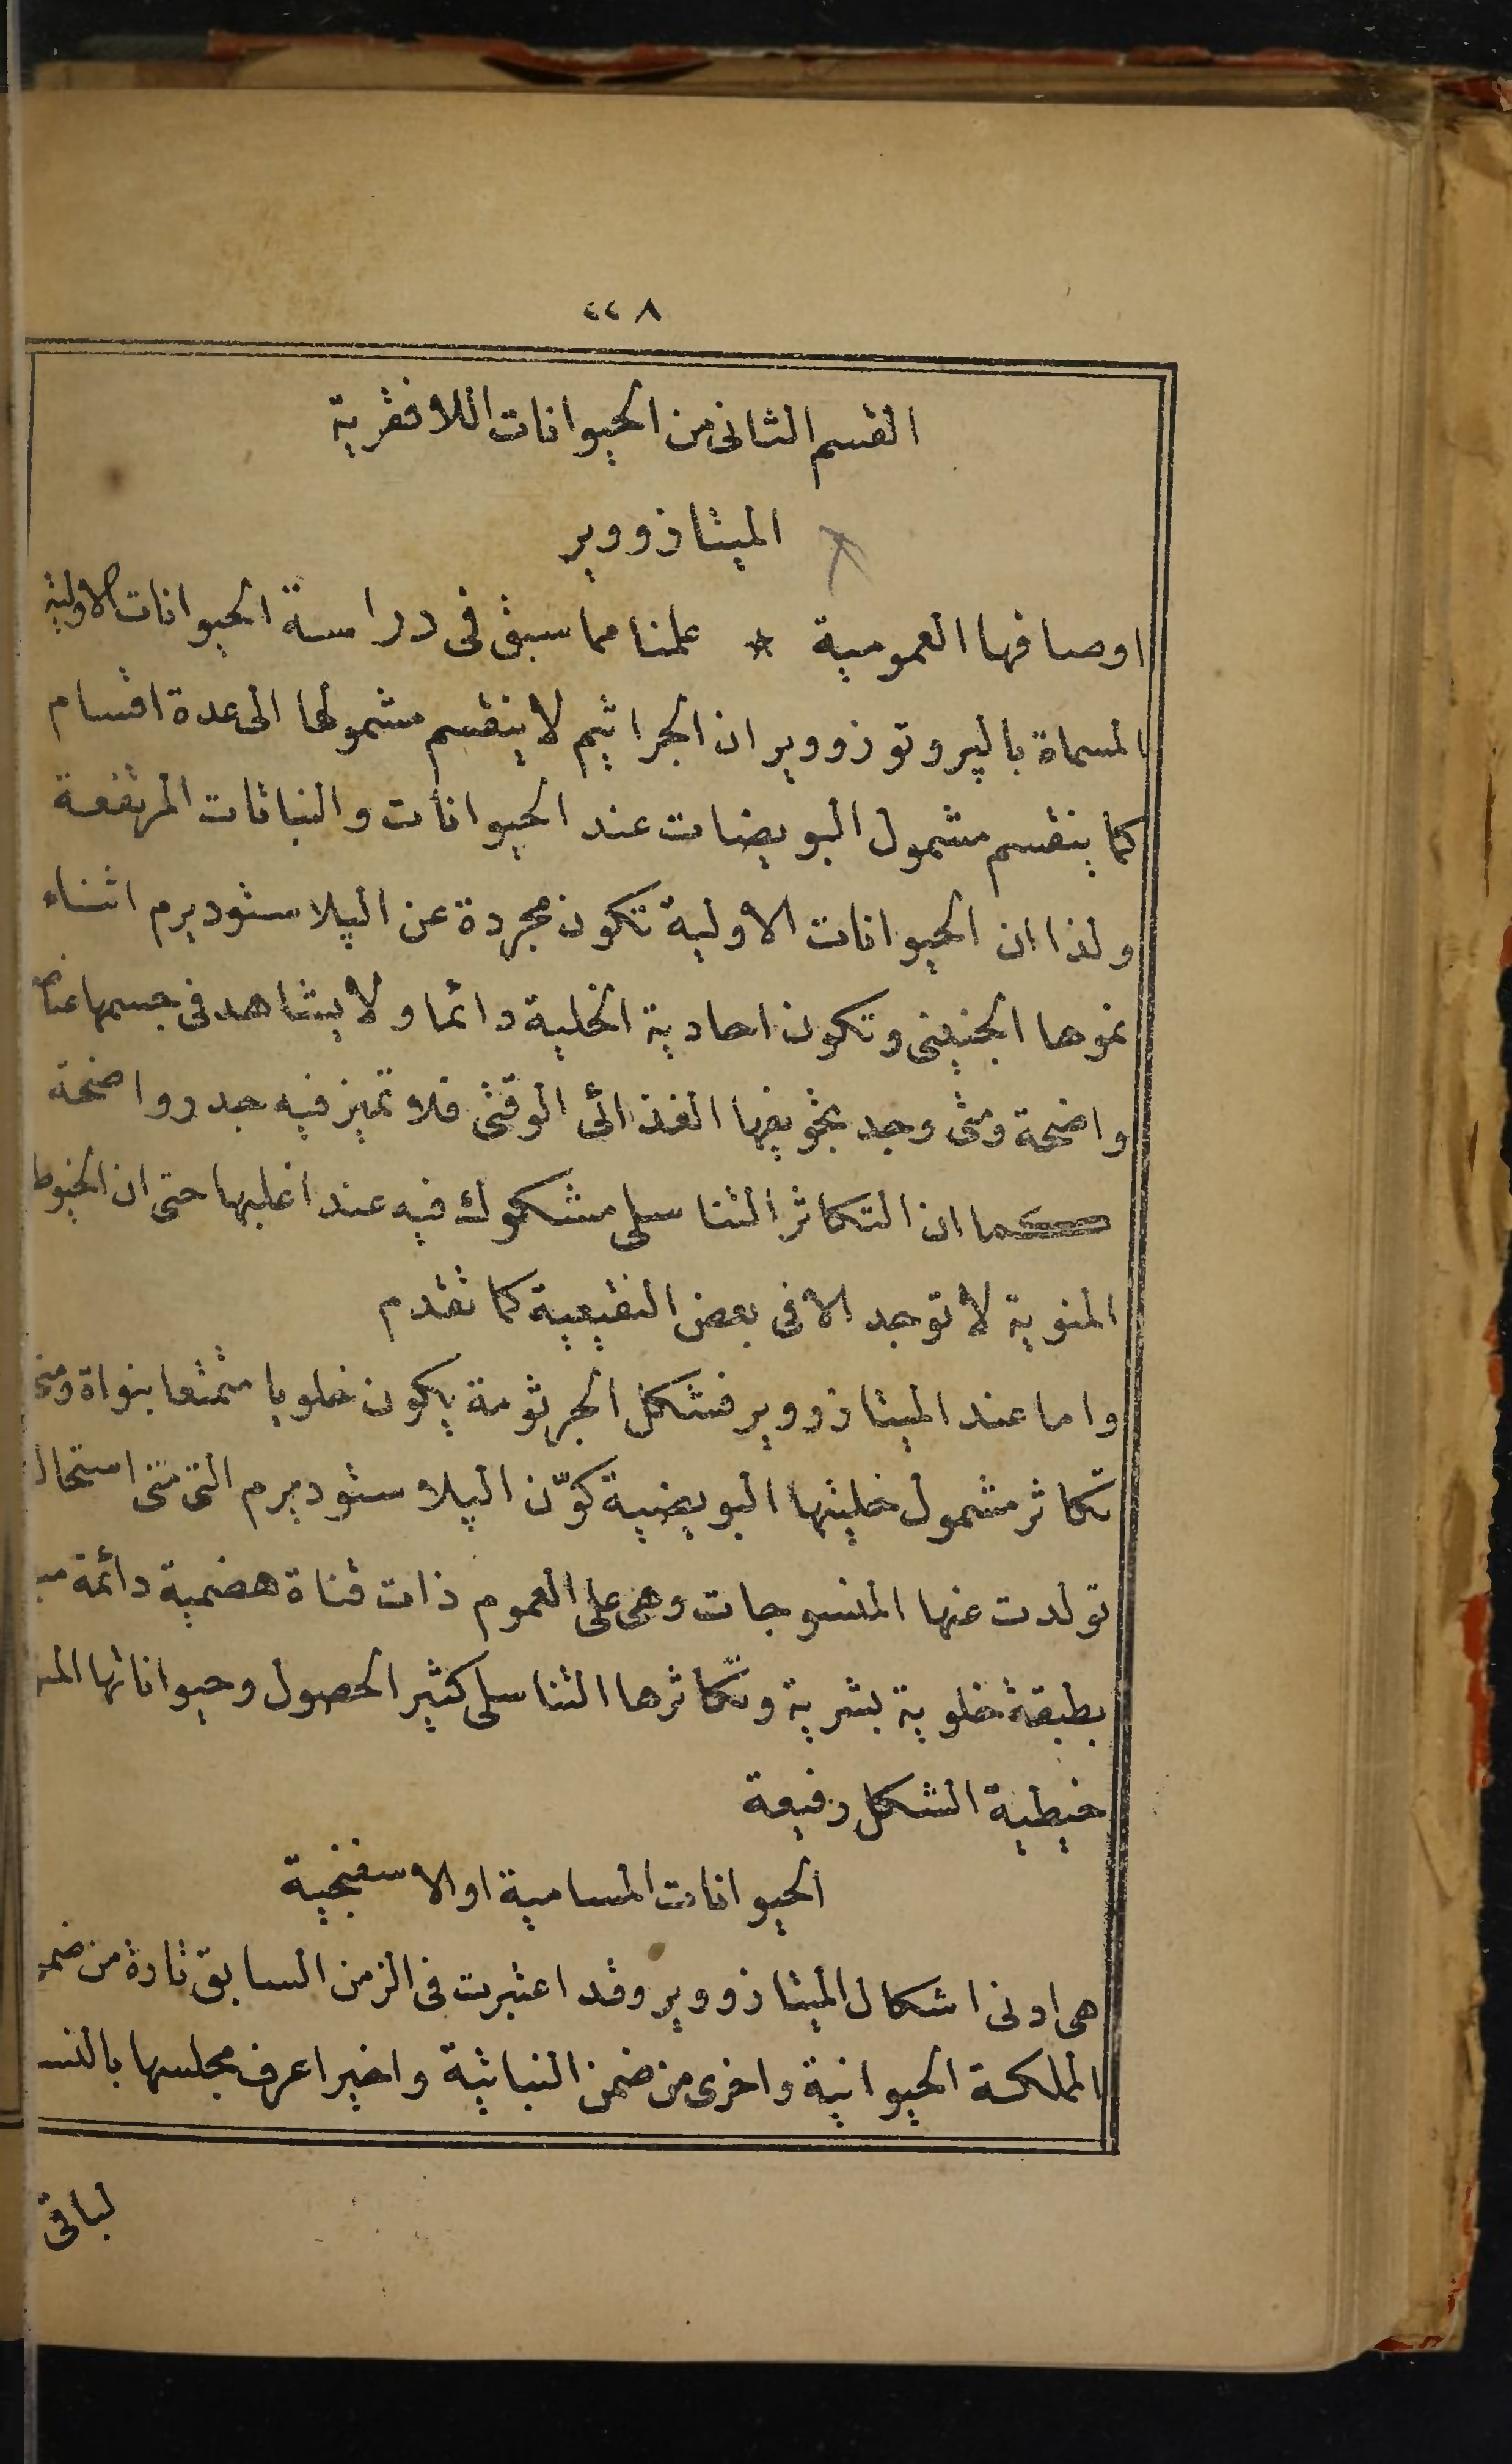 ٤٤٨
القسم الثانى من الحيوانات اللافقرية
الميتازووير
اوصافها العمومية * علمنا مما سبق فى دراسة الحيوانات الاولية
المسماة بالپروتوزووير ان الجراثيم لا ينقسم مشمولها الى عدة اقسام
كما ينقسم مشمول البويضات عند الحيوانات والنباتات المرتفعة
ولذا ان الحيوانات الاولية تكون مجردة عن الپلاستوديرم اثناء
نموها الجنينى وتكون احادية الخلية دائما ولا يشاهد فى جسمها
واضحة ومتى وجد تجويفها الغذائى الوقتى فلا تميز فيه جدر واضحة
كما ان التكاثر التناسلى مشكوك فيه عند اغلبها حتى ان الخيوط
المنوية لا توجد الا فى بعض النقيعية كما تقدم
واما عند الميتازووير فشكل الجرثومة يكون خلويا متمتعا بنواة
تكاثر مشمول خليتها البويضية كوّن الپلاستوديرم التى متى استحال
تولدت عنها المنسوجات وهى على العموم ذات قناة هضمية دائمة
بطبقة خلوية بشرية وتكاثرها التناسلى كثير الحصول وحيواناتها
خيطية الشكل رفيعة
الحيوانات المسامية او الاسفنجية
هى ادنى اشكال الميتازووير وقد اعتبرت فى الزمن السابق تارة من
المملكة الحيوانية واخرى من ضمن النباتية واخيرا عرف مجلسها
لباقى